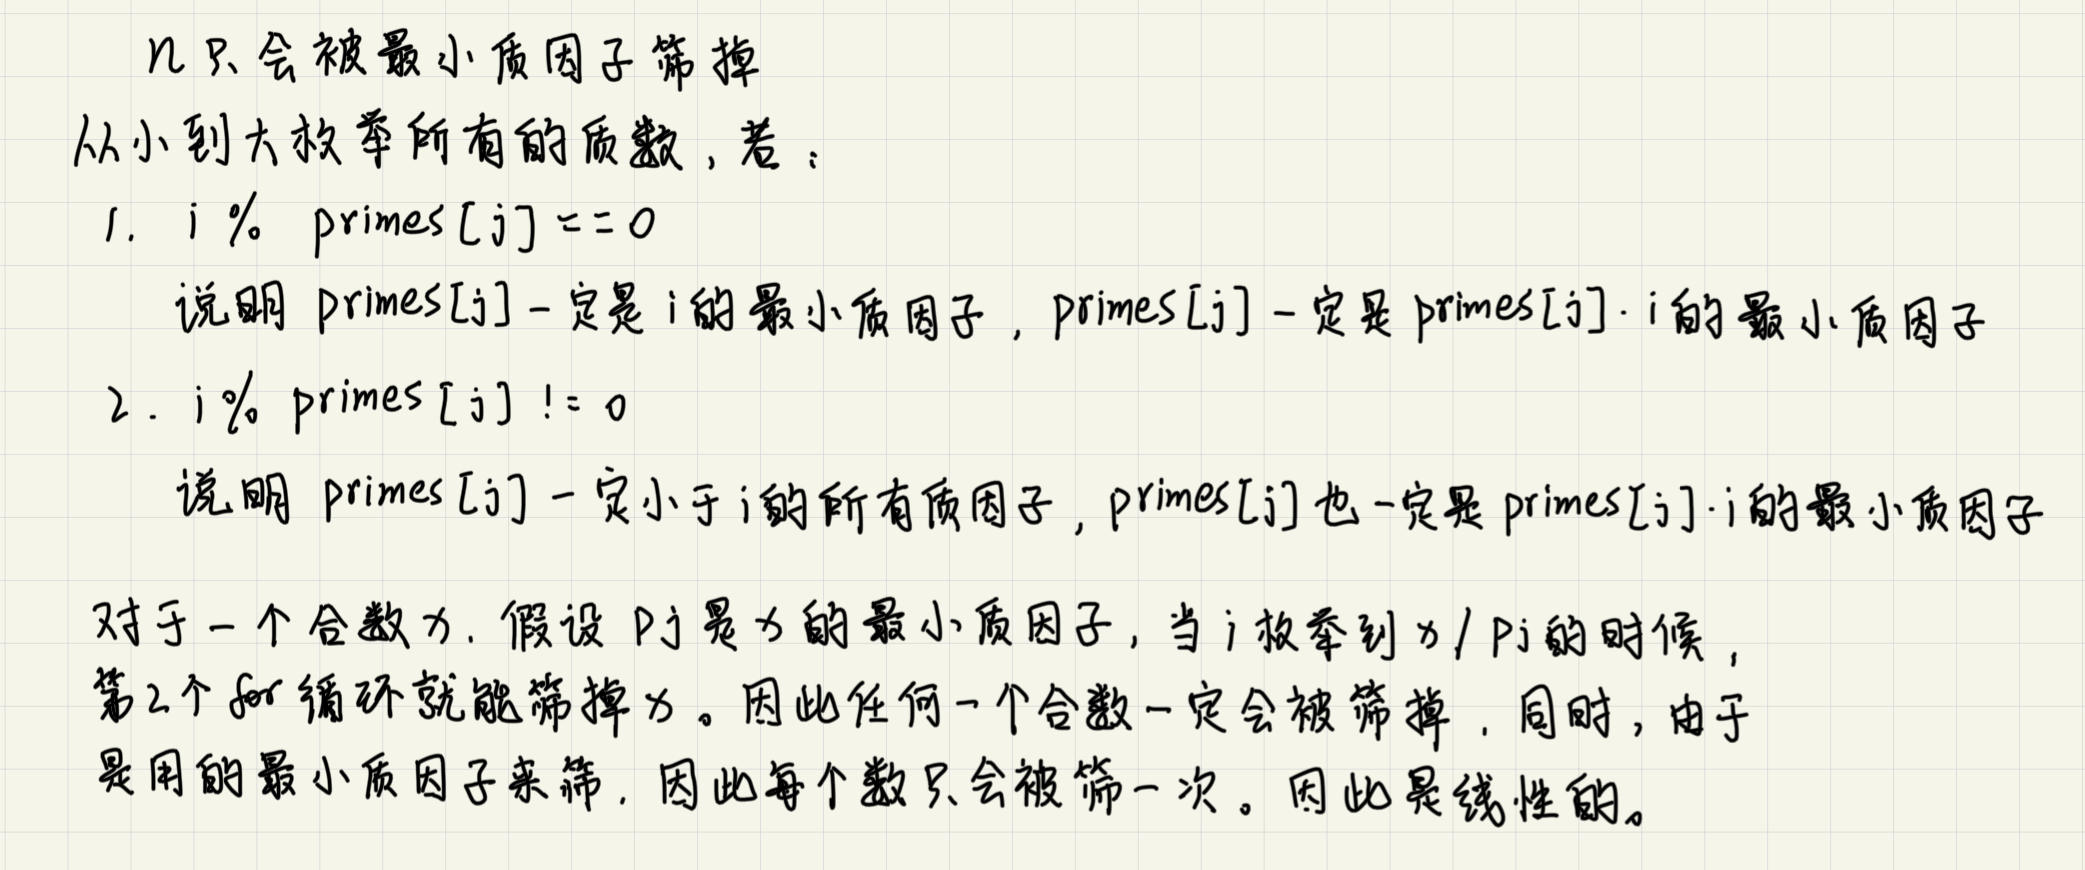 n只会被最小质因子筛掉
从小到大枚举所有的质数，若：
1. i % primes[j] == 0
说明 primes[j]一定是i的最小质因子，primes[j]一定是primes[j]·i的最小质因子
2. i % primes[j] != 0
说明 primes[j]一定小于i的所有质因子，primes[j]也一定是primes[j]·i的最小质因子
对于一个合数x，假设pj是x的最小质因子，当i枚举到x/pj的时候，
第2个for循环就能筛掉x。因此任何一个合数一定会被筛掉，同时，由于
是用的最小质因子来筛，因此每个数只会被筛一次。因此是线性的。